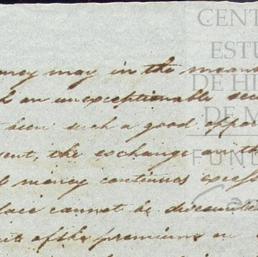 CENT
ESTU
DE HI
DE M
FUND
ney may in the mean
an unexceptionable sec
been such a good opp
ent, the exchange on th
money continues
lace cannot be discoun
of the premiums on